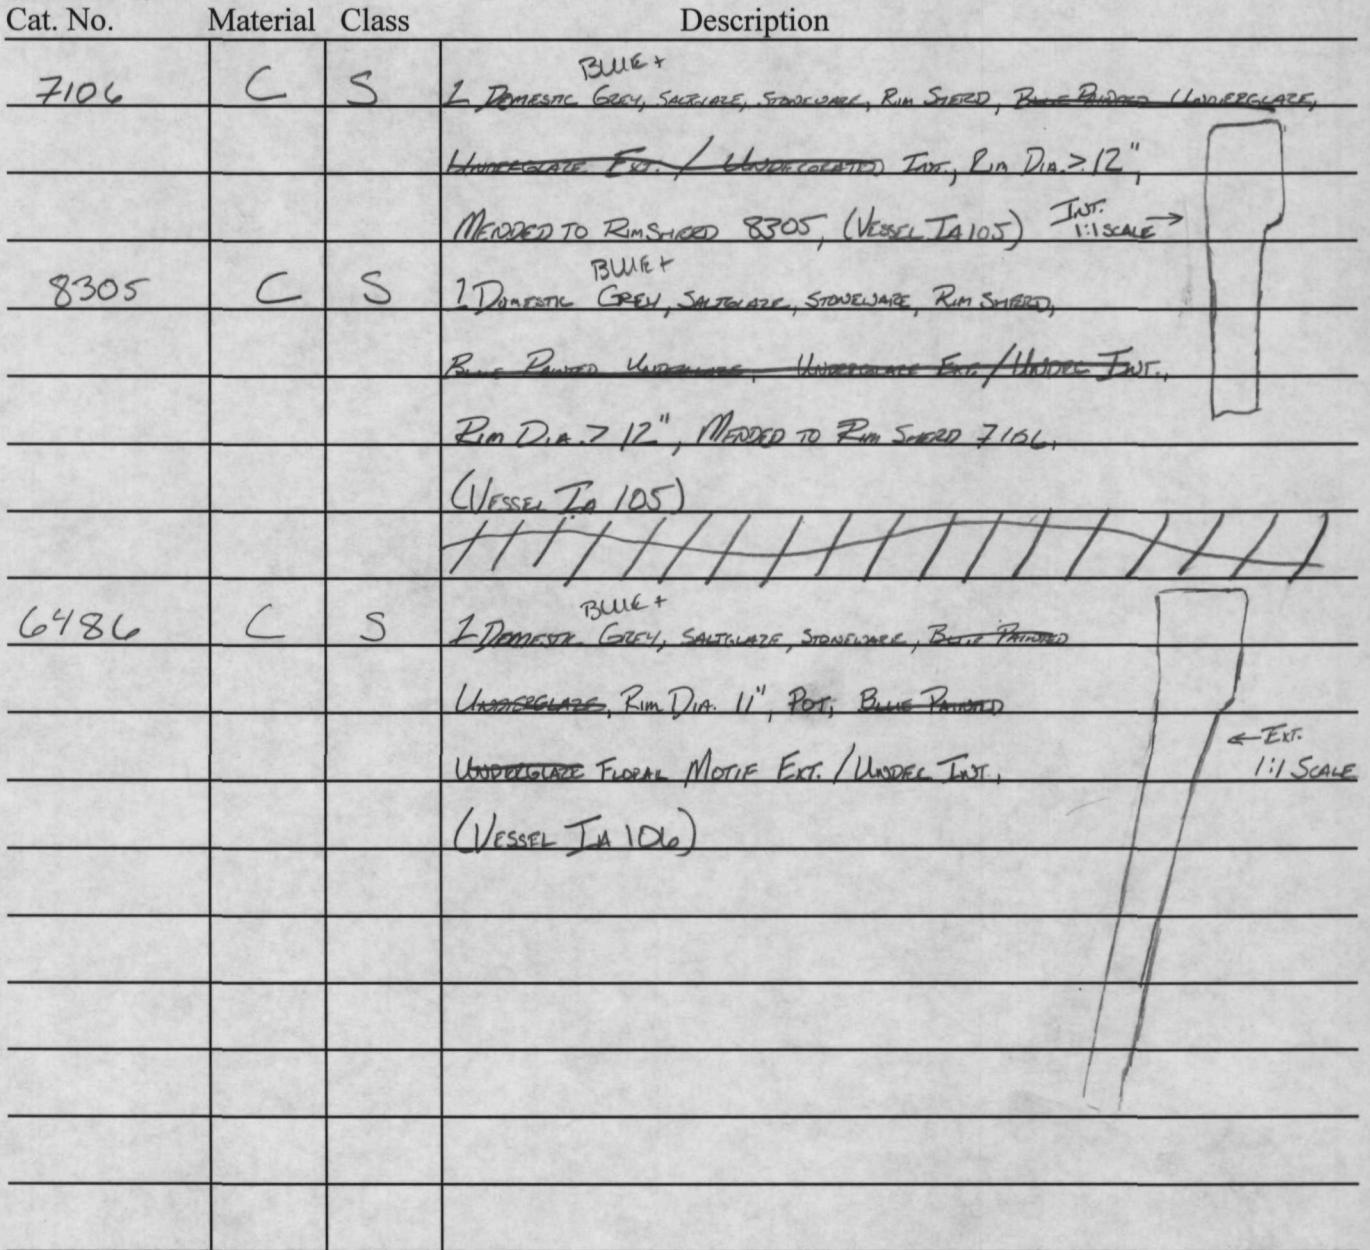 Cat. No. Material Class Description
BLUE +
7106 C S 1 DOMESTIC GREY, SALTGLAZE, STONEWARE, RIM SHERD, BLUE PAINTED UNDERGLAZE,
UNDERGLAZE EXT. / UNDECORATED INT., RIM DIA. > 12",
MENDED TO RIM SHERD 8305, (VESSEL IA 105) INT. 1:1 SCALE →
BLUE +
8305 C S 1 DOMESTIC GREY, SALTGLAZE, STONEWARE, RIM SHERD,
BLUE PAINTED UNDERGLAZE, UNDERGLAZE EXT. / UNDEC INT.,
RIM DIA. > 12", MENDED TO RIM SHERD 7106,
(VESSEL IA 105)
BLUE +
6486 C S 1 DOMESTIC GREY, SALTGLAZE, STONEWARE, BLUE PAINTED
UNDERGLAZE, RIM DIA. 11", POT, BLUE PAINTED
← EXT.
UNDERGLAZE FLORAL MOTIF EXT. / UNDEC INT., 1:1 SCALE
(VESSEL IA 106)